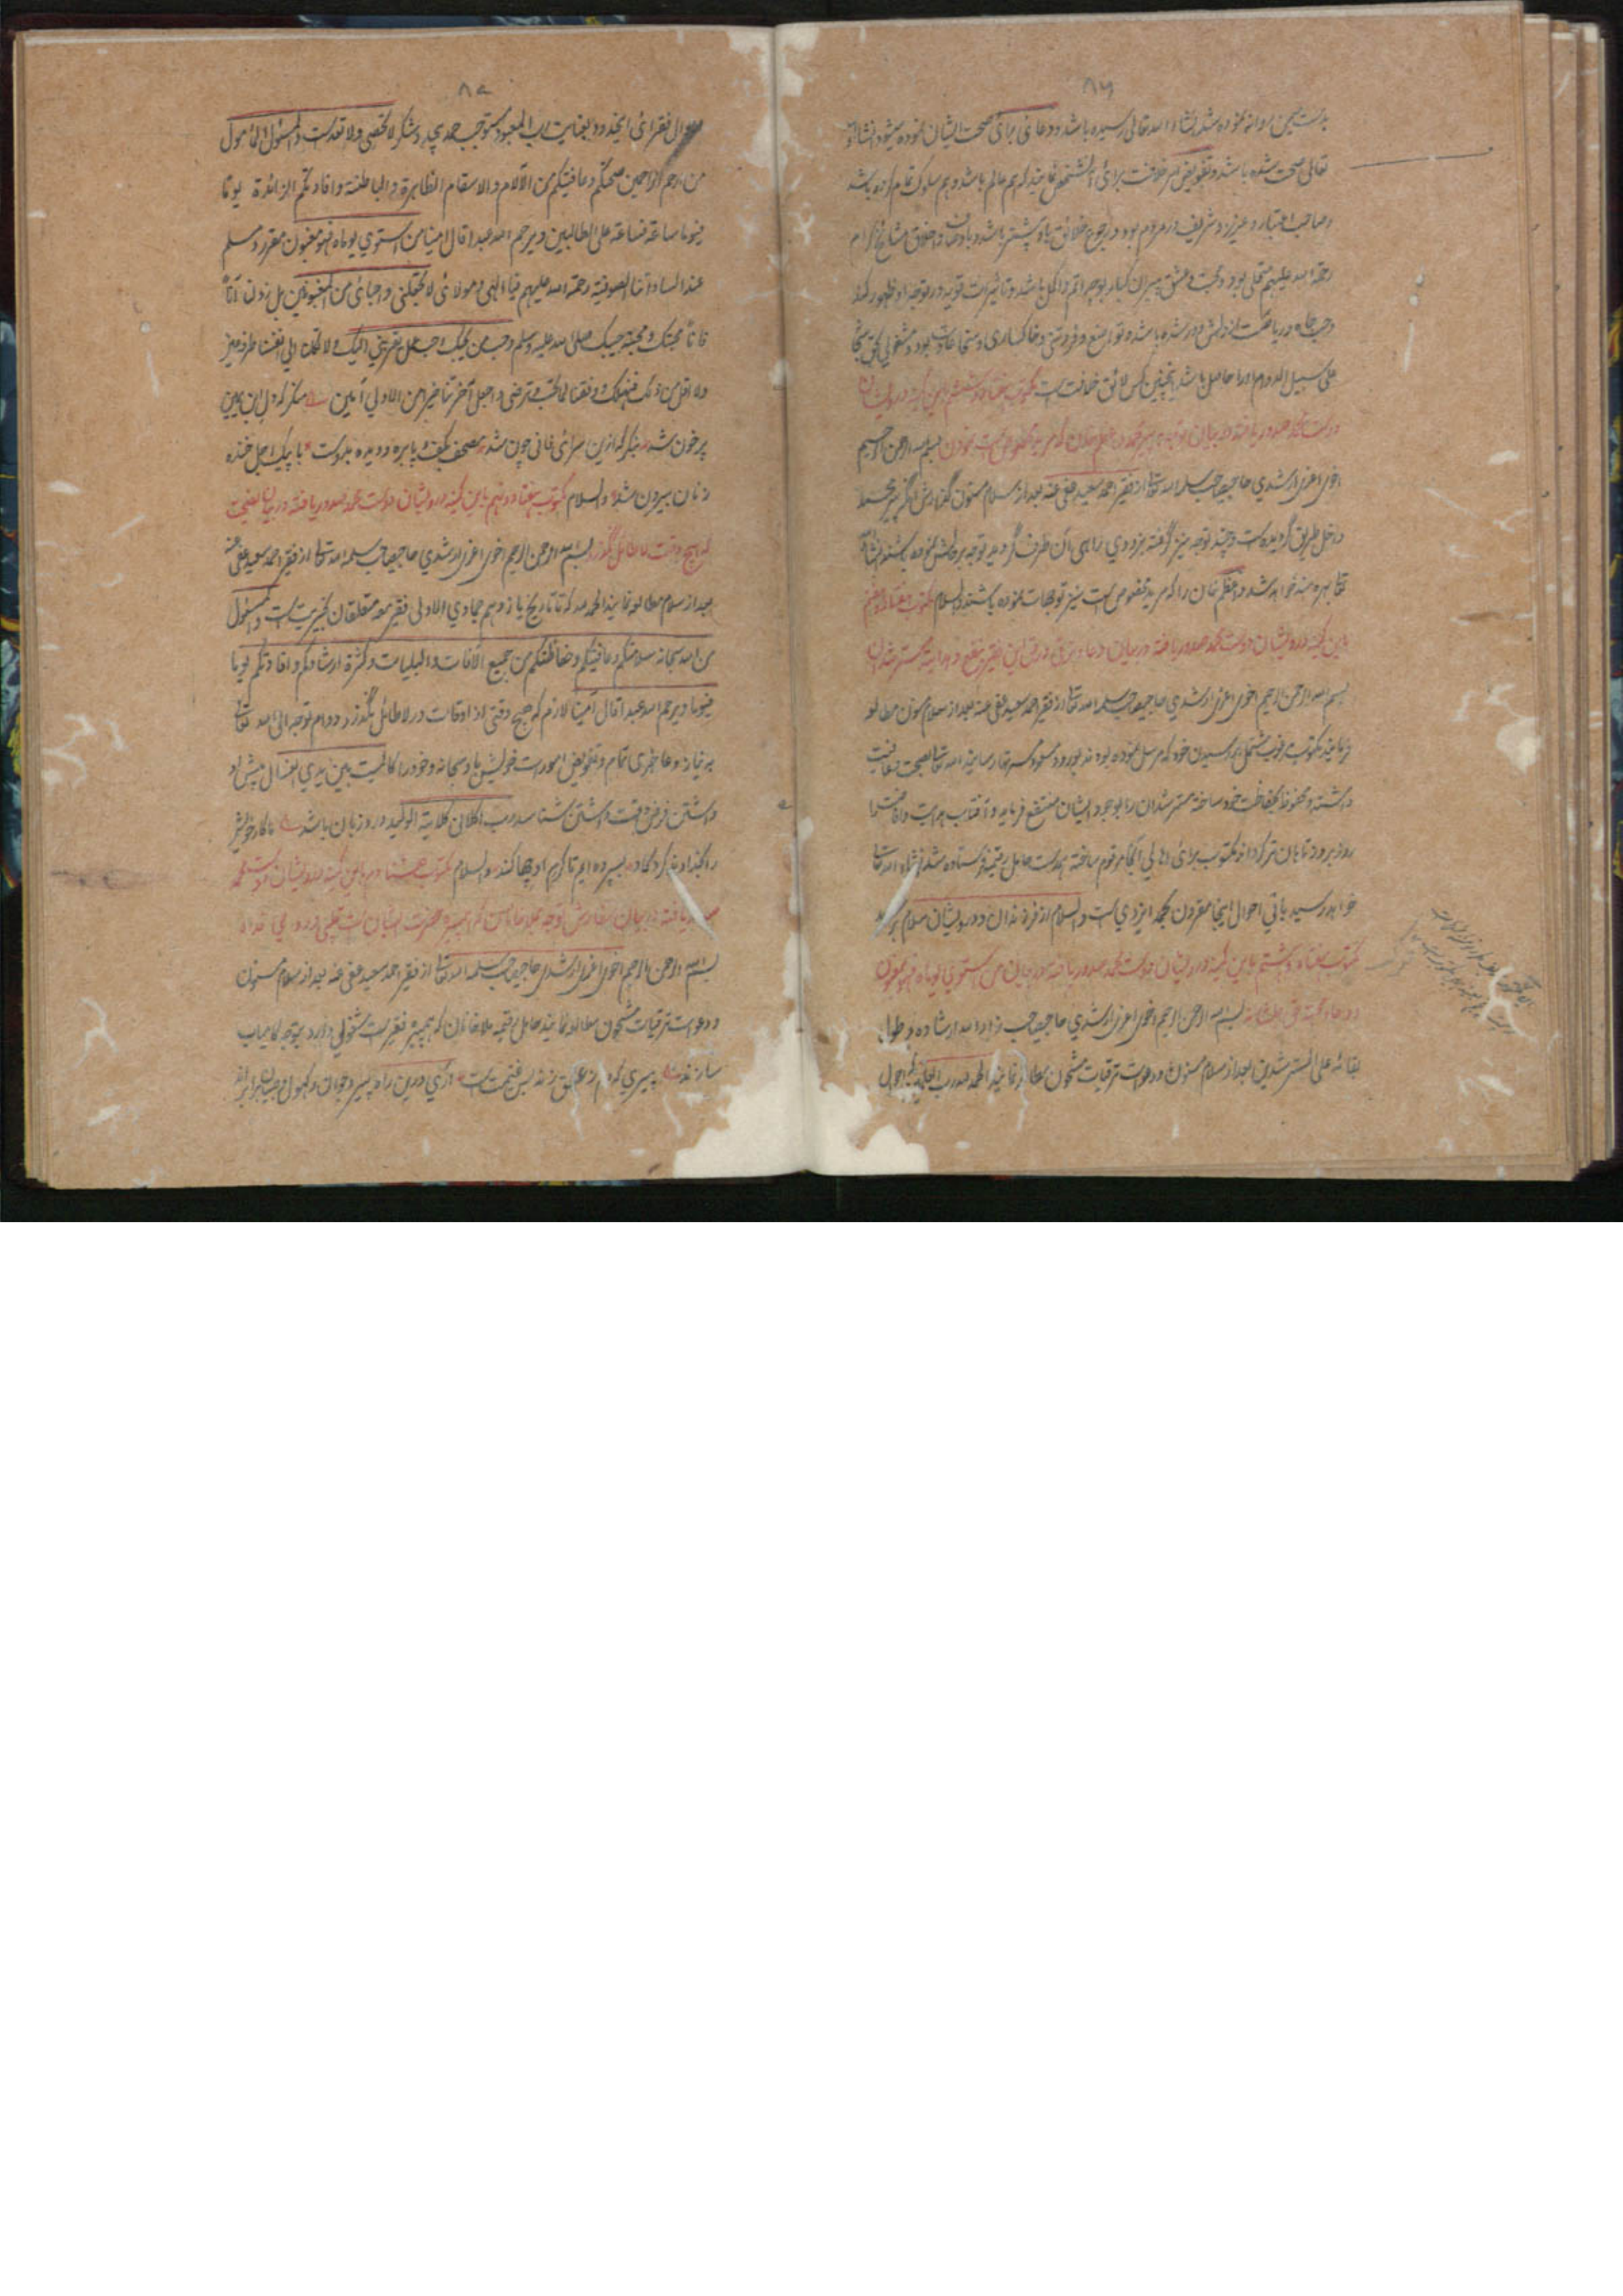 ۸۶
بدست همین روانه نموده شد انشاء الله تعالی رسیده باشد و دعائی برای صحت ایشان نموده میشود انشاء الله
تعالی صحت شده باشد و تفویض خلافت برای شخصی نمایند که هم عالم باشد و هم سلوک تمام کرده باشد
صاحب اعتبار و عزیز و شریف در مردم بود و رجوع خلائق باو بیشتر باشد و باوصاف و اخلاق مشایخ کرام
رحمة الله علیهم متحلی بود و محبت و عشق پیران کبار بوجه اتم و اکمل باشد و تاثیرات قویه در توجه او ظهور کند
وحب جاه و ریاست از دلش دور شده باشد و تواضع و فروتنی و خاکساری و سخا عادت بود و مشغولی بحق سبحانه
علی سبیل الدوام او را حاصل باشد اینچنین کس لائق خلافت است مکتوب هفتاد و ششم باین کمینه درویشان
دوست محمد صدور یافته در بیان توجه پیر محمد و اعظم خان که مرید مخلص است نمودن بسم الله الرحمن الرحیم
اخوی اعزی ارشدی حاجی صاحب سلمه الله تعالی از فقیر احمد سعید عفی عنه بعد از سلام مسنون گذارش آنکه پیر محمد
داخل طریق گردیده است و چند توجه نیز گرفته بزودی راهی آن طرف گردید توجه بر حالش نموده باشند انشاء الله
تعالی بهره مند خواهد شد و اعظم خان را که مرید مخلص است نیز توجهات نموده باشند والسلام مکتوب هفتاد و هفتم
باین کمینه درویشان دوست محمد صدور یافته در بیان دعا و ترقی در حق این فقیر بنفع و هدایة مسترشدان
بسم الله الرحمن الرحیم اخوی اعزی ارشدی حاجی صاحب سلمه الله تعالی از فقیر احمد سعید عفی عنه بعد از سلام مسنون مطالعه
فرمایند مکتوب مرغوب مشتمل بر رسیدن خود که مرسل نموده بودند بورود مسعود مسرتها رسانید الله تعالی بصحت و عافیت
داشته و محفوظ بحفاظت خود ساخته مسترشدان را بوجود ایشان منتفع فرماید و آفتاب هدایت و افاضت شما
روز بروز تابان تر گرداند مکتوب برای اهالی آنجا مرقوم ساخته بدست حامل رقیمه فرستاده شد انشاء الله تعالی
خواهد رسید باقی احوال اینجا مقرون بحمد ایزدی است والسلام از فرزندان و درویشان سلام برسد
مکتوب هفتاد و هشتم باین کمینه درویشان دوست محمد صدور یافته در بیان من استوی یوماه فهو مغبون
و دعاء محبت حق تعالی بسم الله الرحمن الرحیم اخوی اعزی ارشدی حاجی صاحب زاد الله ارشاده و طول
بقائه علی المسترشدین بعد از سلام مسنون و دعوات ترقیات مشحون مطالعه نمایند الحمد لله رب العالمین که احوال
۸۷
احوال فقرای اینحدود بعنایت رب المعبود مستوجب حمد بیحد و شکر لا تحصی ولا تعد است والمسئول المأمول
من ارحم الراحمین صحتکم و عافیتکم من الآلام والاسقام الظاهرة والباطنة وافادتکم الزائدة یوما
فیوما ساعة فساعة علی الطالبین ویرحم الله عبدا قال امینا من استوی یوماه فهو مغبون مقرر و مسلم
عند السادات الصوفیة رحمة الله علیهم فیا الهی و مولائی لا تجعلنی و احبائی من المغبونین بل زدن آنا
فانا محبتک و محبة حبیبک صلی الله علیه وسلم وحب من یحبک وحب عمل یقربنی الیک ولا تکلنا الی انفسنا طرفة عین
ولا اقل من ذلک بفضلک و وفقنا لما تحب و ترضی و اجعل آخرتنا خیرا من الاولی آمین منگر که دل ابن یمین
پرخون شد بنگر که ازین سرای فانی چون شد مصحف بکف و پا بره و دیده بدوست با پیک اجل خنده
زنان بیرون شد والسلام مکتوب هفتاد و نهم باین کمینه درویشان دوست محمد صدور یافته در بیان نصیحت
که هیچ وقت لاطائل نگذرد بسم الله الرحمن الرحیم اخوی اعزی ارشدی حاجی صاحب سلمه الله تعالی از فقیر احمد سعید عفی عنه
بعد از سلام مطالعه نمایند الحمد لله که تا تاریخ یازدهم جمادی الاولی فقیر معه متعلقان بخیریت است والمسئول
من الله سبحانه سلامتکم و عافیتکم و حفاظتکم من جمیع الآفات والبلیات و کثرة ارشادکم و افادتکم یوما
فیوما ویرحم الله عبدا قال امینا لازم که هیچ وقتی از اوقات در لاطائل نگذرد و دوام توجه الی الله تعالی
به نیاز و عاجزی تمام و تفویض امورات خویش باو سبحانه و خود را کالمیت بین یدی الغسال پیش او
داشتن فرض وقت داشتن شناسد رب اکلانی کلایة الولید ورد زبان باشد ما کار خویش
را بخداوند کردگار بسپرده ایم تا کرم او چها کند والسلام مکتوب هشتادم باین کمینه درویشان دوست محمد
صدور یافته در بیان سفارش توجه بملا خانان که همشیره حضرت ایشان
بسم الله الرحمن الرحیم اخوی اعزی ارشدی حاجی صاحب سلمه الله تعالی از فقیر احمد سعید عفی عنه بعد از سلام مسنون
و دعوات ترقیات مشحون مطالعه نمایند حامل رقیمه ملا خانان که همشیر فقیر است شغولی دارد بتوجه کامیاب
سازند پیری که دم ز عشق زند بس غنیمت است آری درین راه پیر و جوان و کهول و صبیان برابراند